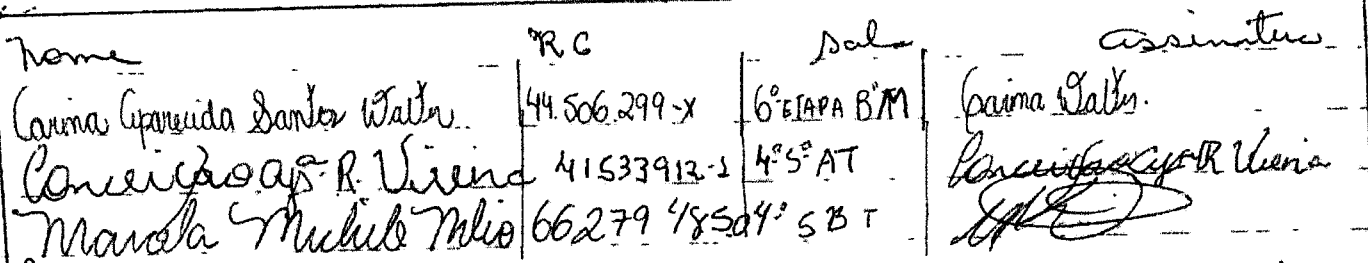 Nome RG Sala Assinatura
Carina Aparecida Santos Walter 44.506.299-X 6ª ETAPA B M Carina Walter.
Conceição Apª R. Vieira 41533912-1 4ª 5ª AT Conceição Apª R Vieira
Michele 66279 4ª S B T